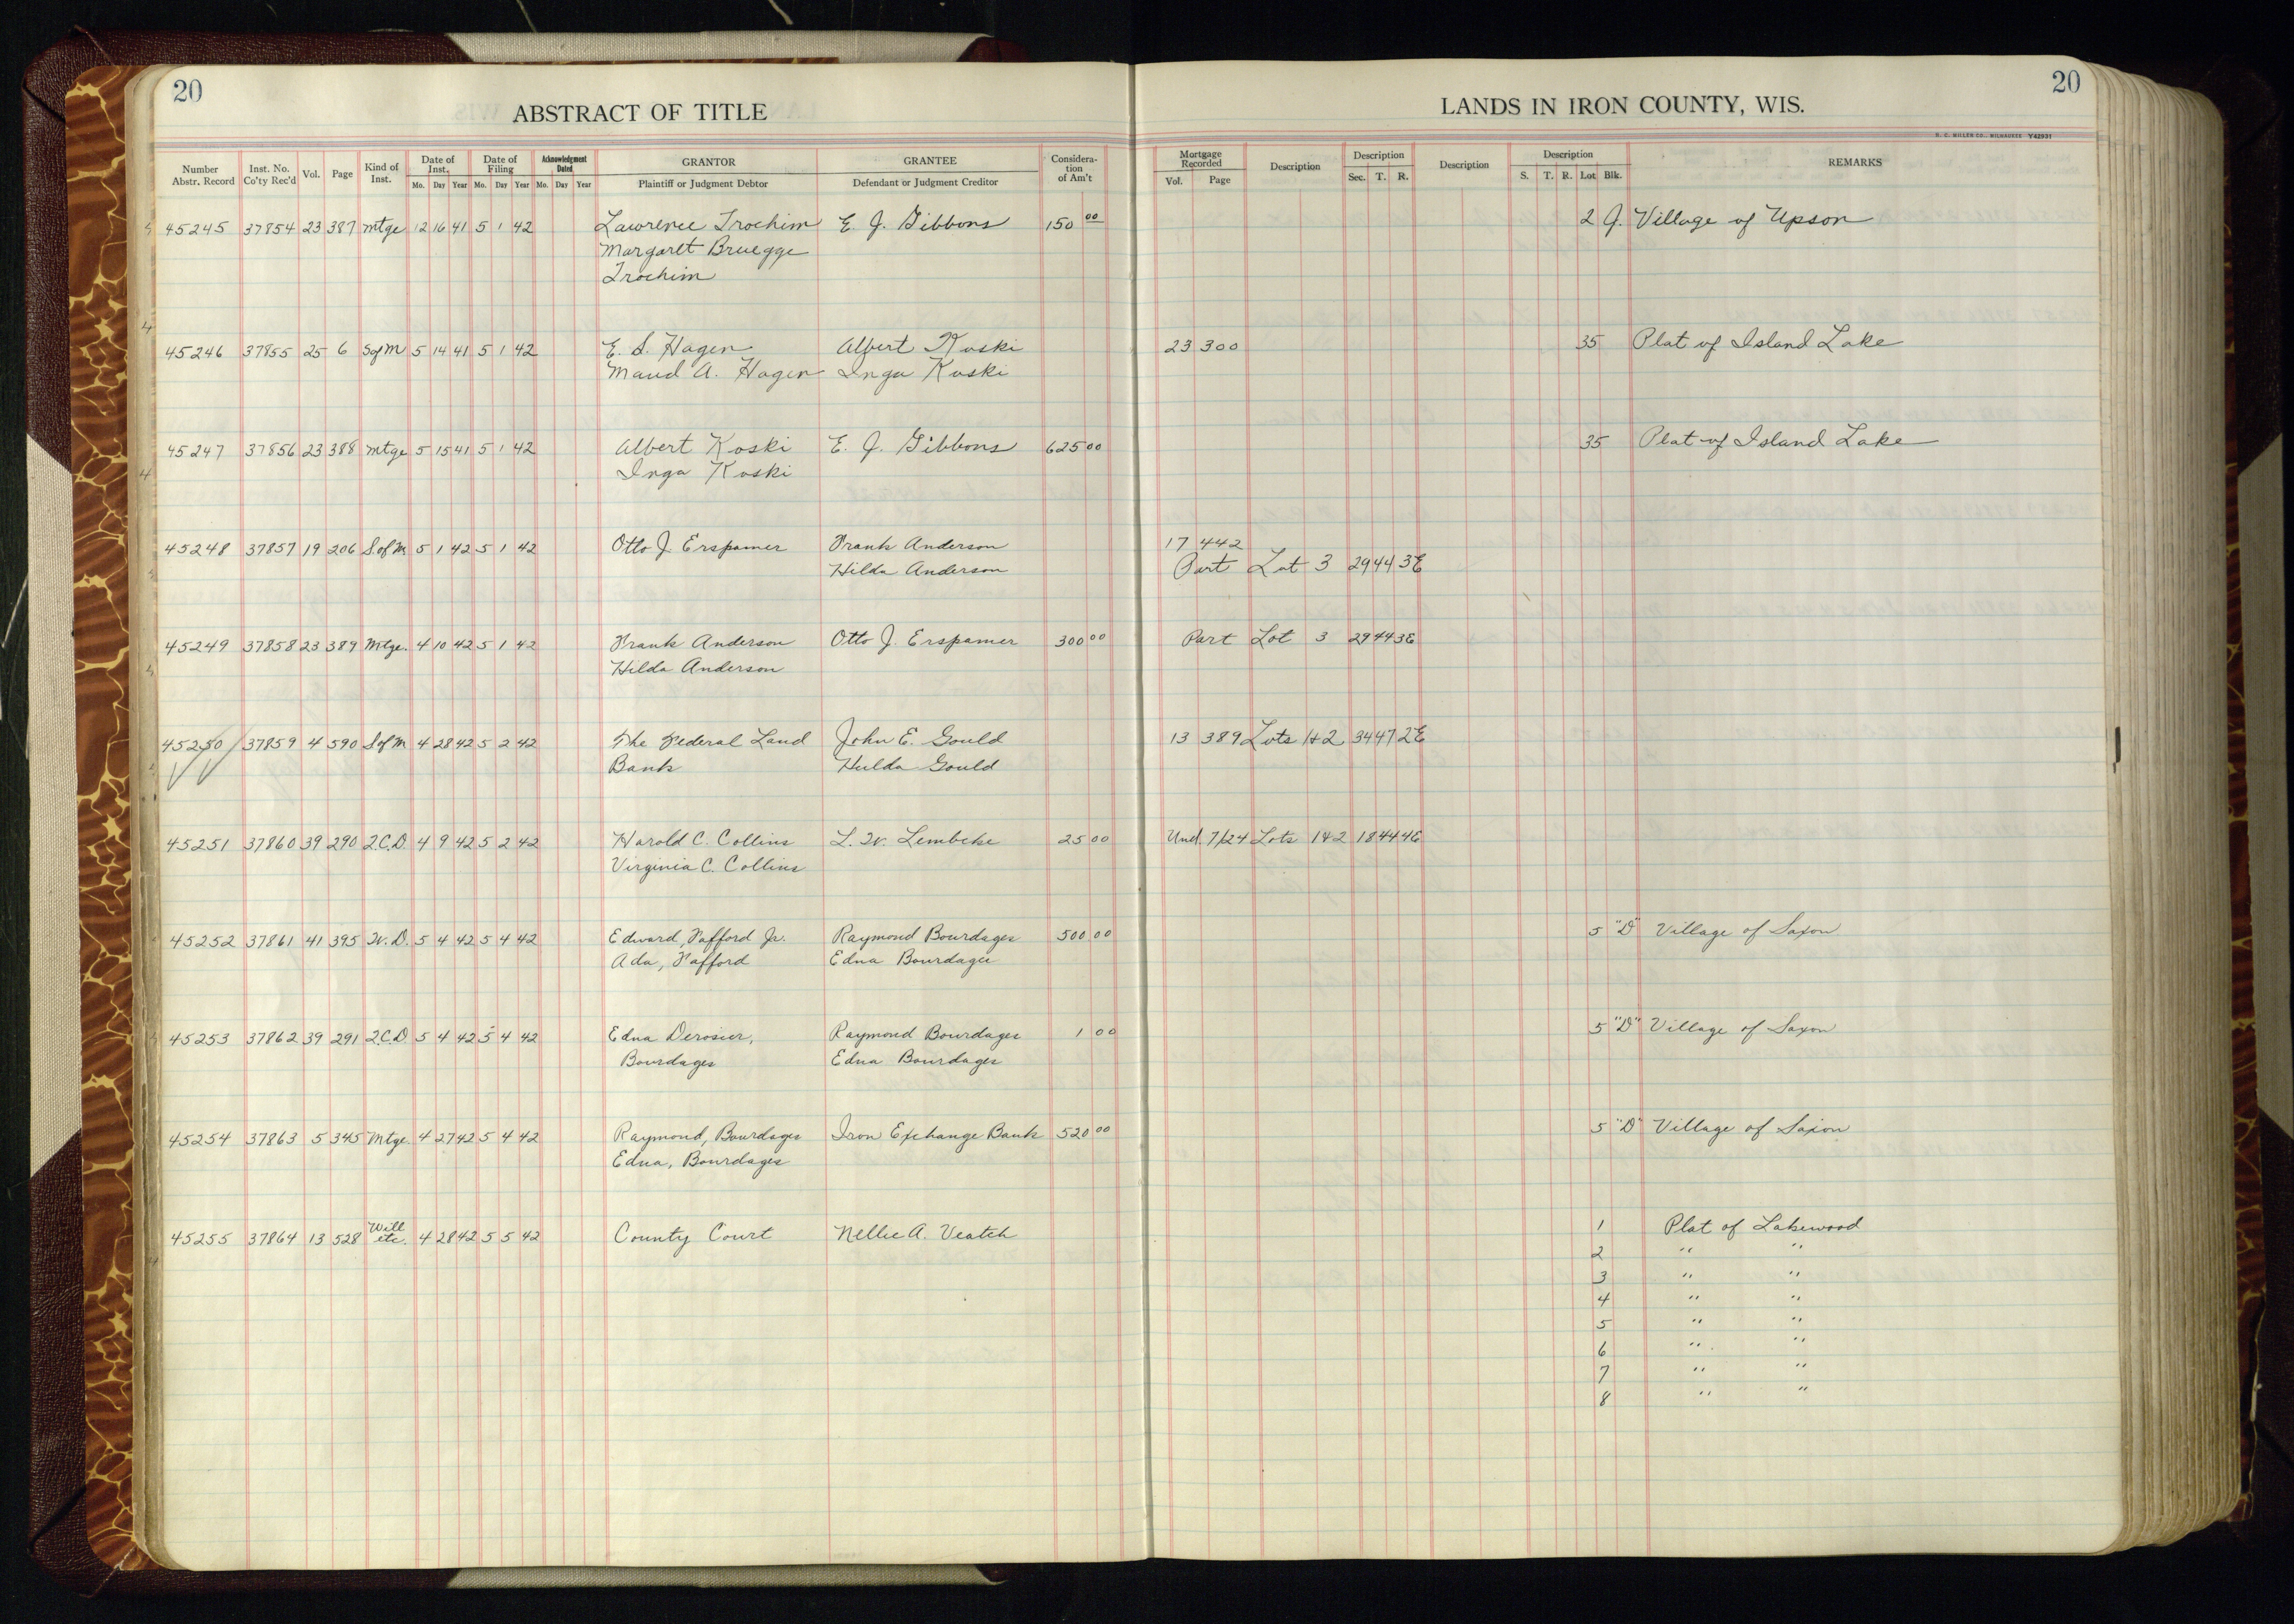 20
20
ABSTRACT OF TITLE
LANDS IN IRON COUNTY, WIS.
H. C. MILLER CO., MILWAUKEE Y42931
Number Abstr. Record Inst. No. Co'ty Rec'd Vol. Page Kind of Inst. Date of Inst. Mo. Day Year Date of Filing Mo. Day Year Acknowledgment Dated Mo. Day Year GRANTOR Plaintiff or Judgment Debtor GRANTEE Defendant or Judgment Creditor Considera-tion of Am't Mortgage Recorded Vol. Page Description Description Sec. T. R. Description Description S. T. R. Lot Blk. REMARKS
45245 37854 23 387 mtge 12 16 41 5 1 42 Lawrence Trochim E. J. Gibbons 150 00 2 J. Village of Upson
Margaret Bruegge
Trochim
45246 37855 25 6 SofM 5 14 41 5 1 42 E. S. Hagen Albert Koski 23 300 35 Plat of Island Lake
Maud A. Hagen Inga Koski
45247 37856 23 388 mtge 5 15 41 5 1 42 Albert Koski E. J. Gibbons 625 00 35 Plat of Island Lake
Inga Koski
45248 37857 19 206 S.ofM. 5 1 42 5 1 42 Otto J Erspamer Frank Anderson 17 442
Hilda Anderson Part Lot 3 29 44 3E
45249 37858 23 389 Mtge. 4 10 42 5 1 42 Frank Anderson Otto J. Erspamer 300 00 Part Lot 3 29 44 3E
Hilda Anderson
45250 37859 4 590 SofM 4 28 42 5 2 42 The Federal Land John E. Gould 13 389 Lots 1&2 34 47 2E
Bank Hulda Gould
45251 37860 39 290 2.C.D. 4 9 42 5 2 42 Harold C. Collins L. W. Lembcke 25 00 Und. 7/24 Lots 1&2 18 44 4E
Virginia C. Collins
45252 37861 41 395 W. D. 5 4 42 5 4 42 Edward, Fafford Jr. Raymond Bourdages 500 00 5 "D" Village of Saxon
Ada, Fafford Edna Bourdages
45253 37862 39 291 2.C.D 5 4 42 5 4 42 Edna Derosier, Raymond Bourdages 1 00 5 "D" Village of Saxon
Bourdages Edna Bourdages
45254 37863 5 345 Mtge. 4 27 42 5 4 42 Raymond, Bourdages Iron Exchange Bank 520 00 5 "D" Village of Saxon
Edna, Bourdages
45255 37864 13 528 Will etc. 4 28 42 5 5 42 County Court Nellie A. Veatch 1 Plat of Lakewood
2 " "
3 " "
4 " "
5 " "
6 " "
7 " "
8 " "